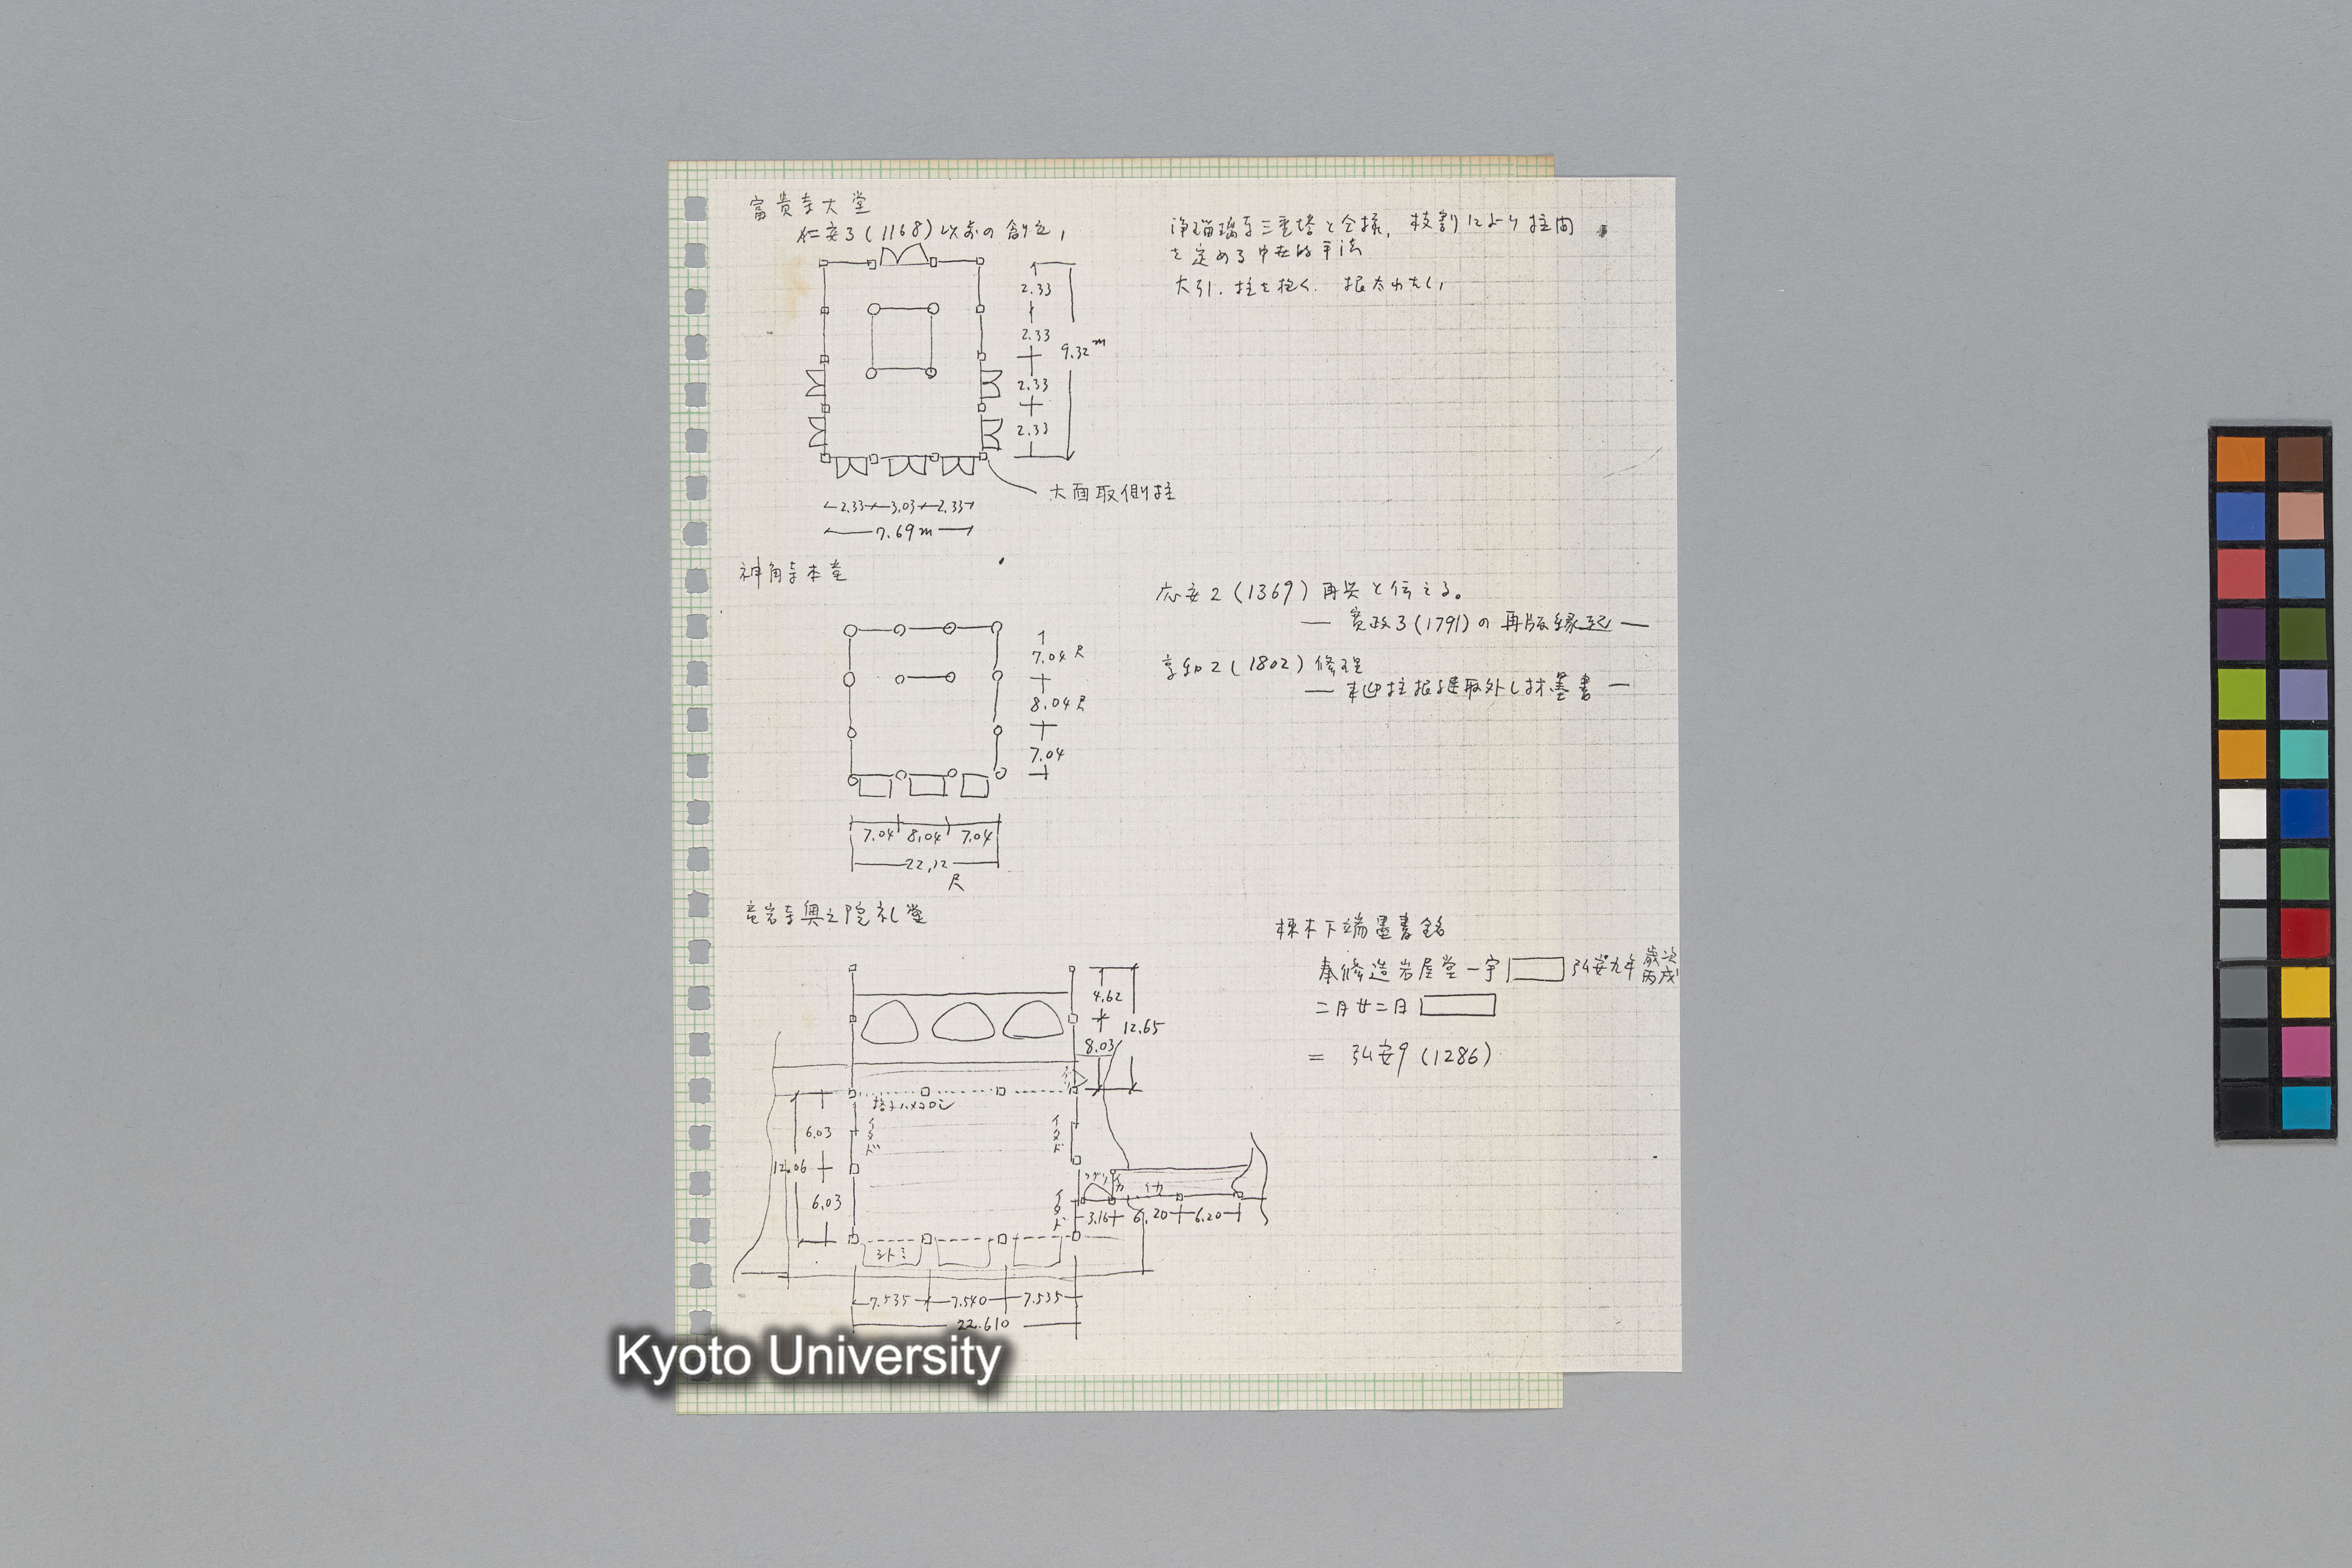 富貴寺大堂
仁安3(1168)以前の創立,
浄瑠璃寺三重塔と仝様, 枝割により柱間
を定める中世的手法
大引. 柱を抱く. 根太わたし,
2.33
2.33
9.32m
2.33
2.33
大面取側柱
2.33 3.03 2.33
7.69m
神角寺本堂
応安2(1369)再興と伝える。
— 寛政3(1791)の再版縁起 —
享和2(1802)修理
— 来迎柱根継取外し材墨書 —
7.04尺
8.04尺
7.04
7.04 8.04 7.04
22.12
尺
竜岩寺奥之院礼堂
棟木下端墨書銘
奉修造岩屋堂一宇 弘安九年 歳次丙戌
二月廿二日
= 弘安9(1286)
4.62
12.65
8.03
格子ハメコロシ
イタド
イタド
6.03
12.06
6.03
イタド
3.16 6.20 6.20
シトミ
7.535 7.540 7.535
22.610
Kyoto University